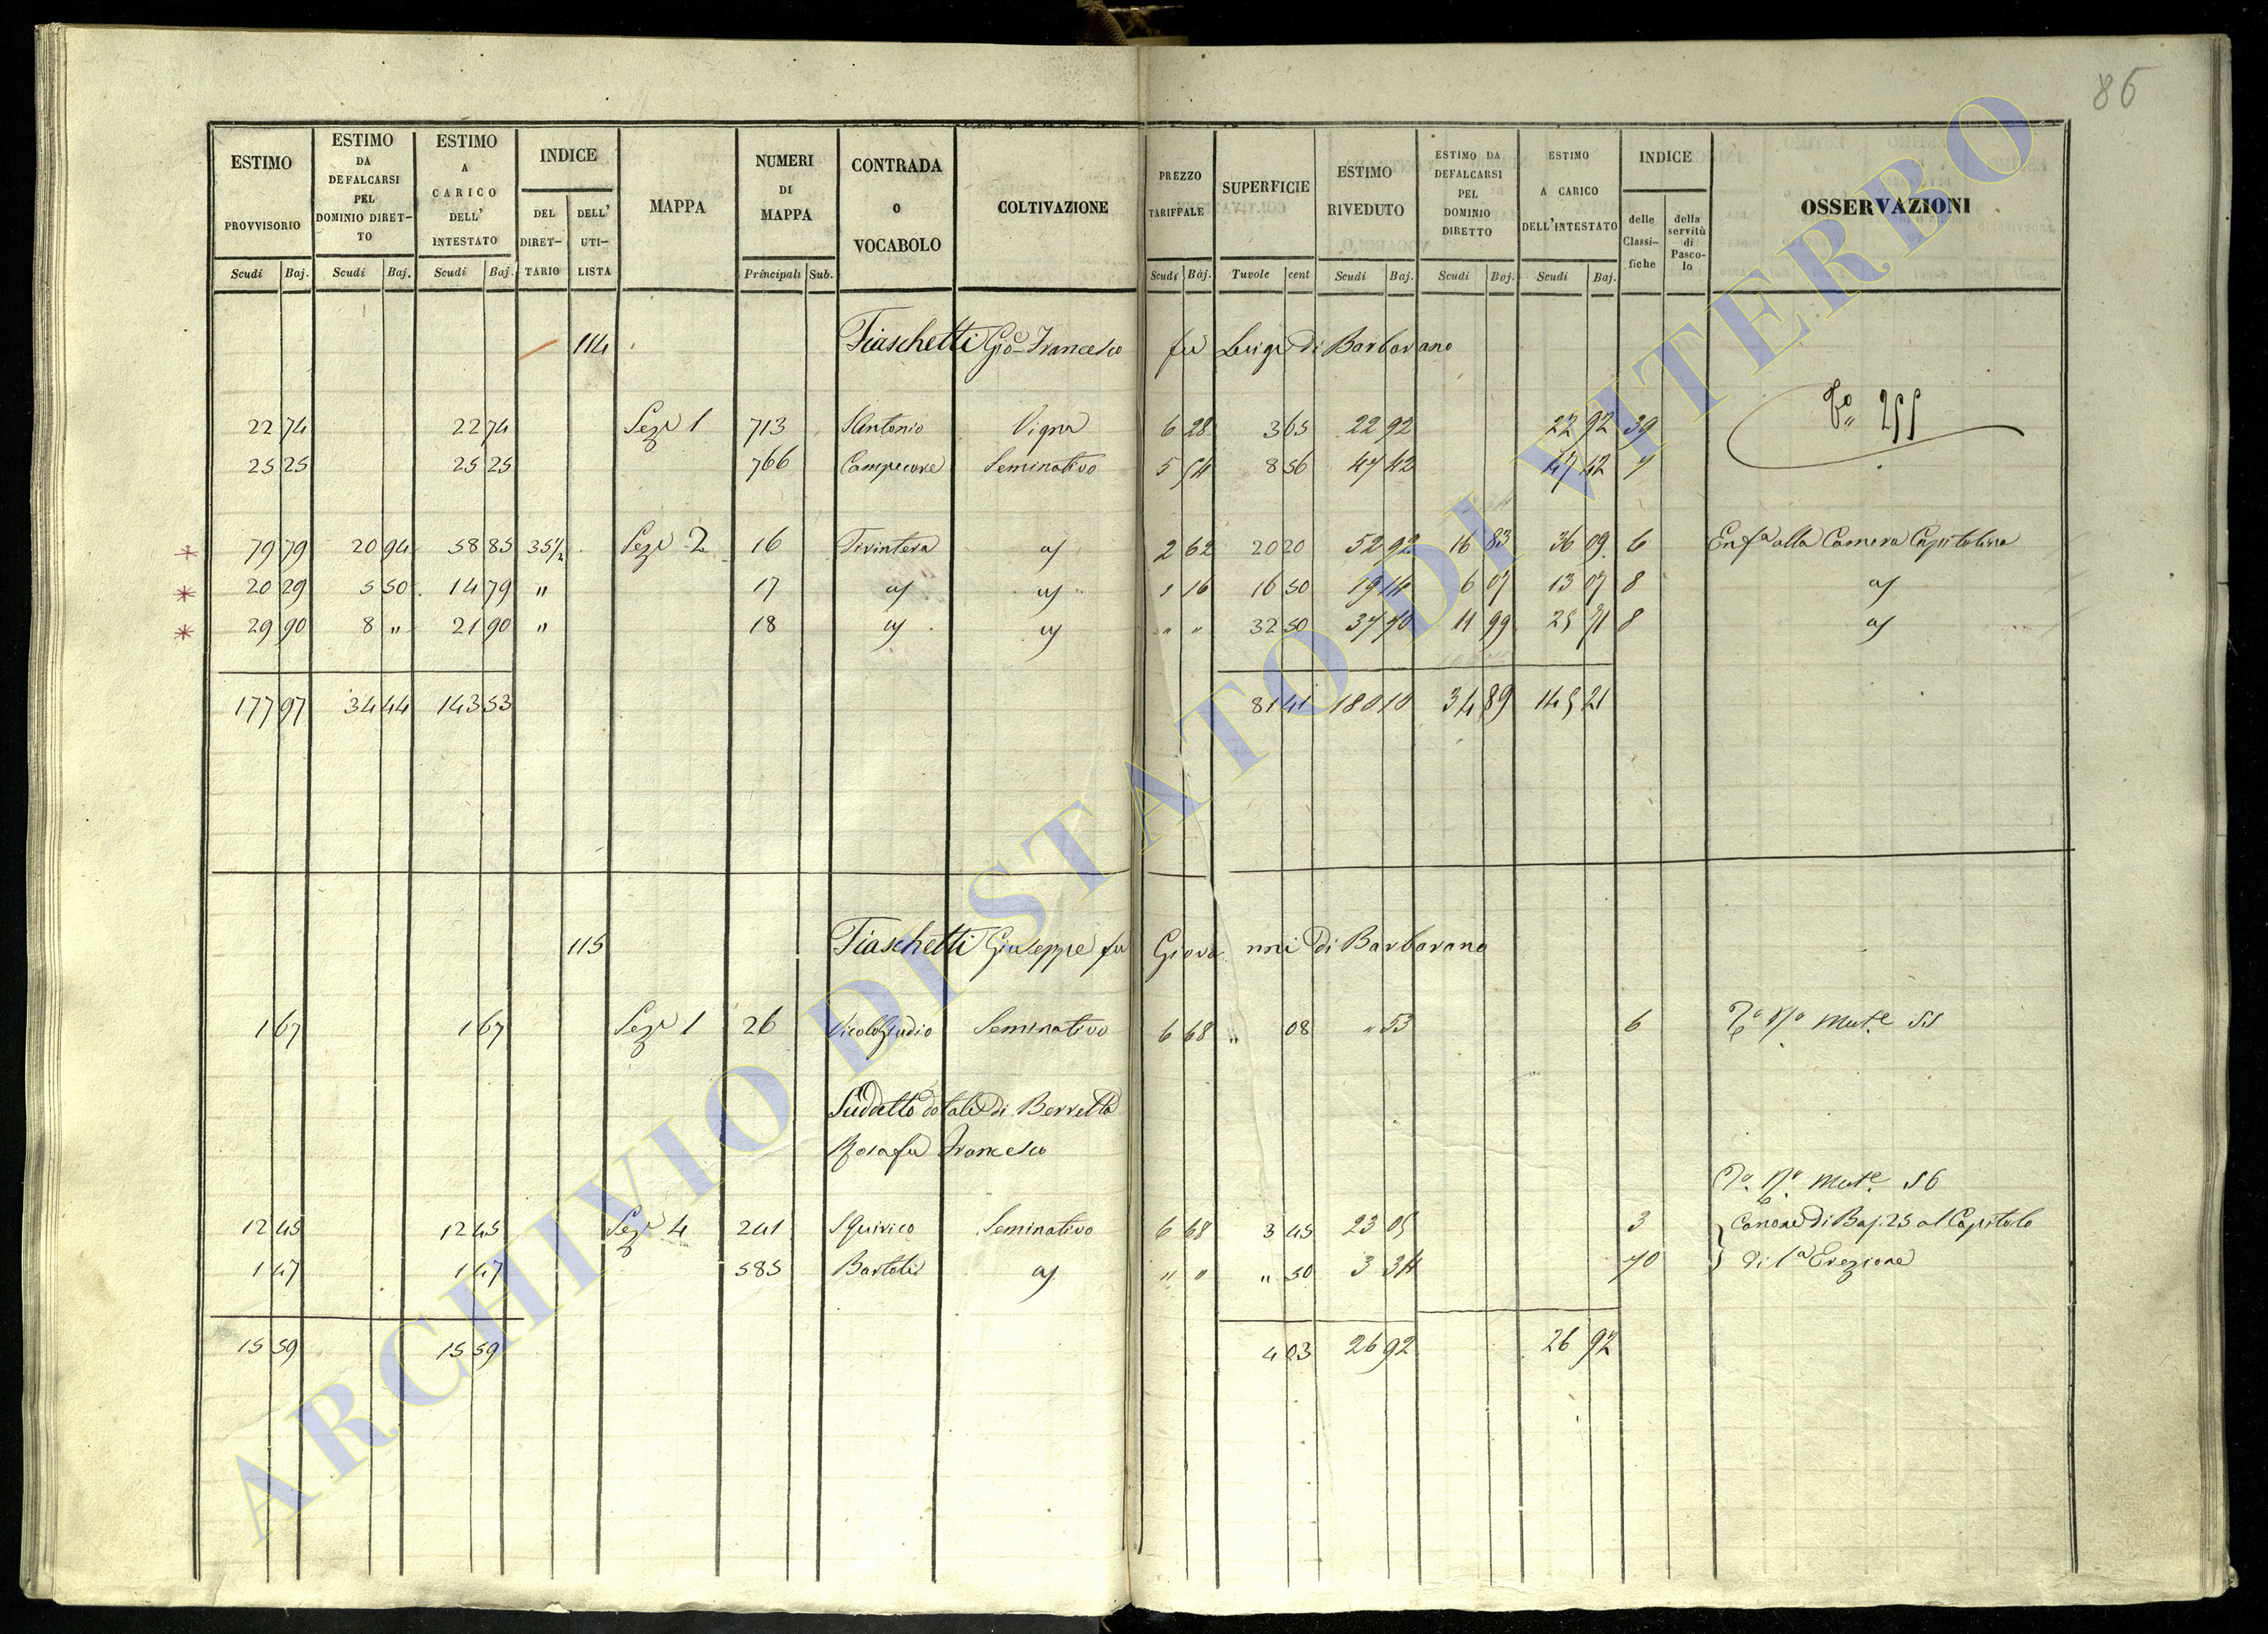 86
ESTIMO PROVVISORIO Scudi Baj.
ESTIMO DA DEFALCARSI PEL DOMINIO DIRET-TO Scudi Baj.
ESTIMO A CARICO DELL' INTESTATO Scudi Baj.
INDICE DEL DIRET-TARIO DELL' UTI-LISTA
MAPPA
NUMERI DI MAPPA Principali Sub.
CONTRADA O VOCABOLO
COLTIVAZIONE
PREZZO TARIFFALE Scudi Baj.
SUPERFICIE Tavole cent
ESTIMO RIVEDUTO Scudi Baj.
ESTIMO DA DEFALCARSI PEL DOMINIO DIRETTO Scudi Baj.
ESTIMO A CARICO DELL'INTESTATO Scudi Baj.
INDICE delle Classi-fiche della servitù di Pasco-lo
OSSERVAZIONI
114 Fiaschetti Gio Francesco fu Luigi di Barbarano
255
22 74 22 74 Sezе 1 713 S Antonio Vigna 6 28 3 65 22 92 22 92 39
25 25 25 25 766 Seminativo 5 54 8 56 47 42 47 42 7
79 79 20 94 58 85 35½ Seze 2 16 2 62 20 20 52 92 16 83 36 09 6 Enfa alla Camera Capitolina
20 29 5 50 14 79 " 17 1 16 16 50 19 14 6 07 13 07 8
29 90 8 " 21 90 " 18 " " 32 50 37 70 11 99 25 71 8
177 97 34 44 143 53 81 41 180 10 34 89 145 21
115 Fiaschetti Giuseppe fu Giovanni di Barbarano
1 67 1 67 Seze 1 26 Seminativo 6 68 " 08 " 53 6 Mute 55
Suddetto dotale di Berretta
Rosa fu Francesco
Mute 56
12 45 12 45 Seze 4 241 S Quirico Seminativo 6 68 3 45 23 05 3 Canone di Baj. 25 al Capitolo
1 47 1 47 585 Bartoli " " " 50 3 34 70 di 1a Erezione
15 59 15 59 4 03 26 92 26 92
ARCHIVIO DI STATO DI VITERBO